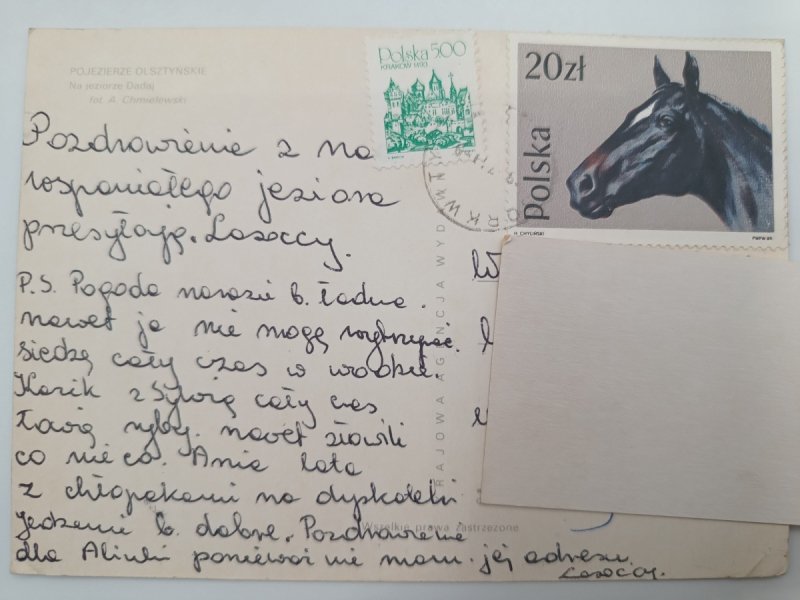 POJEZIERZE OLSZTYŃSKIE
Na jeziorze Dadaj
fot. A. Chmielewski
Polska 5.00
KRAKÓW 1493
20zł
Polska
H. CHYLIŃSKI
PWPW
Pozdrowienie z na
wspaniałego jeziora
przesyłają. Lasoccy.
P.S. Pogoda narazie b. ładna.
nawet ja nie mogę
siedzę cały czas w wodzie.
z Sywią cały czas
Łowią ryby. nawet złowili
co nie co. Ania lata
z chłopakami na dyskoteki
Jedzenie b. dobre. Pozdrowienie
dla Alinki poniewoż nie mam jej adresu.
Lasoccy.
RAJOWA AGENCJA WYDAWN
Wszelkie prawa zastrzeżone